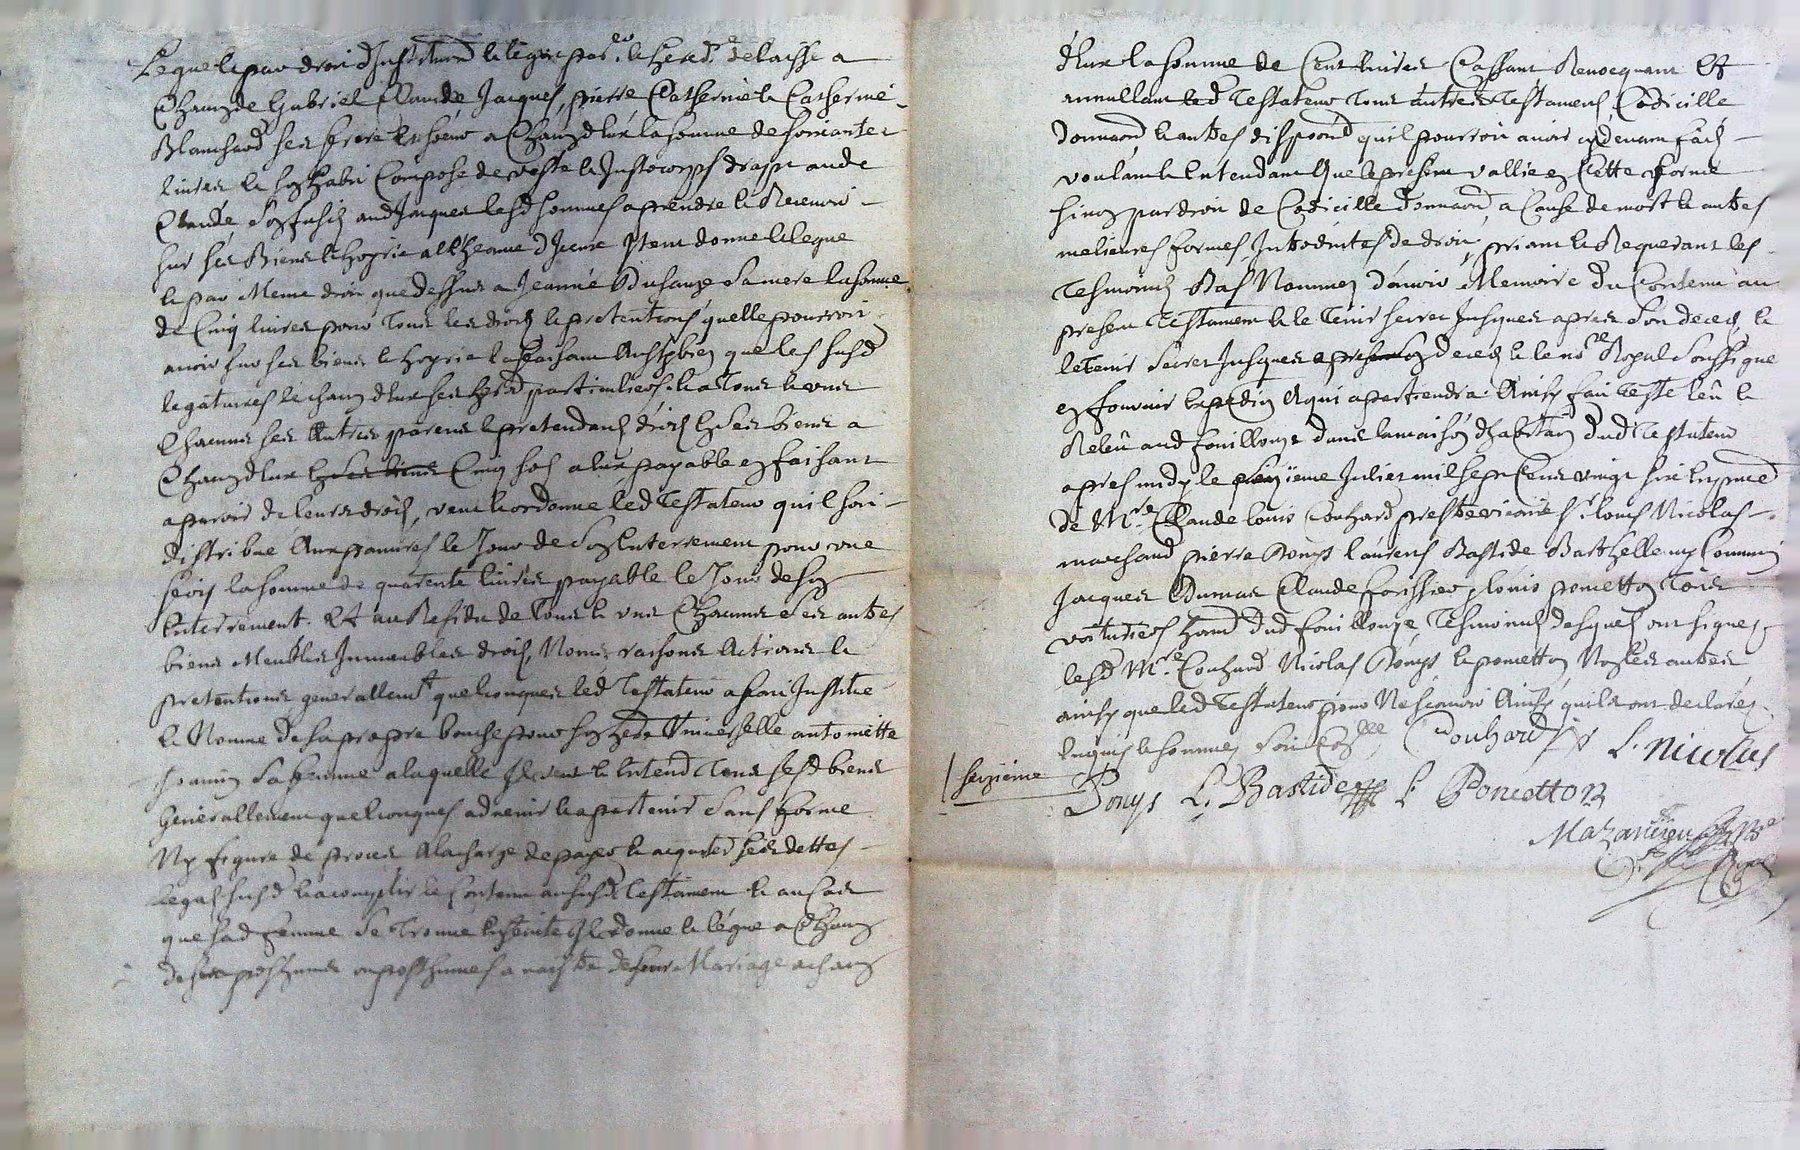 Legue et par droit d'Institu͠on et legue par.re et hered.re delaisse a
Chacun de Gabriel Claude Jacques, pierre Catherine et Catherine
Blanchard ses frere et soeurs a Chacun d'eux la somme de soixante
livres et son habit Compose de veste et Justocorps drap
Claude son fusil aud Jacques lesd sommes a prendre et Recevoir
sur ses Biens et hoyrie Item donne et legue
et par Meme droit que dessus a Jeanne sa mere la somme
de Cinq livres pour tous les droits et pretentions quelle pourroit
avoir sur ses biens et hoyrie la faisant Aussy bien que les susd
legataires et chacun d'eux ses hered particuliers et a tous et uns
Chacuns ses Autres parens et pretendants droits en ses biens a
Chacun d'eux en ses biens Cinq sols a eux payable en faisant
aparoir de leurs droits, veut et ordonne led Testateur quil soit
distribue Aux pauvres le Jour de son Enterrement pour une
fois la somme de quarente livres payable le Jour de son
Enterrement. Et au Residu de tous et uns Chacuns ses autres
biens Meubles Immeubles droits, Noms raisons Actions et
pretentions generallem.t quelconques led Testateur a fait Institue
et Nomme de sa propre bouche pour son hered Universelle antoinette
sa femme a laquelle Il veut et Entend tous sesd biens
Generallement quelconques advenir et apartenir Sans forme
Ny figure de proces A la charge de payer et acquiter ses dettes
legas susd et acomplir le Contenu au susd Testament et au Cas
que sad femme Se trouve Enceinte Il donne et legue a Chacun
de ses posthumes ou posthumes a naistre de leur Mariage a chacun
d'eux la somme de Cent livres Cassant Revocquant Et
annullant led Testateur tous autres Testaments Codicille
donna͠on et autres disposi͠on quil pourroit avoir cy devant faits
voulant et Entendant Que le present vallie en Cette forme
sinon par droit de Codicille Donna͠on a Cause de mort et autres
melieures formes Introduites de droit, priant et Requerant les
Tesmoins Bas Nommez d'avoir Memoire du Contenu au
present Testament et le tenir secret Jusques apres son deces, et
le tenir secret Jusques apres son deces et le no.re Royal Soussigne
en fournir Expedi͠on A qui apartiendra. Ainsy fait Teste leu et
Releu aud fouillouze dans la maison d'habita͠on dud Testateur
apres midy le Juliet mil sept Cens vingt six En pnce
de M.re Claude louis Couhard prestre vicaire S.r louis Nicolas
marchand pierre Pouys laurens Bastide Barthellemy Commin
Jacques Dumas Claude forissier louis poncetton Tous
voituriers habit dud fouillouze, Tesmoins desquels ont signez
lesd M.re Couhard Nicolas Pouys et poncetton Non les autres
ainsy que led Testateur pour Ne scavoir Ainsy quils ont declarez
Enquis et sommez Soit Con.lle Couhard L. nicolas
/ seizieme
Pouys L. Bastide L. Poncetton
Mazancieu N.re
Royal